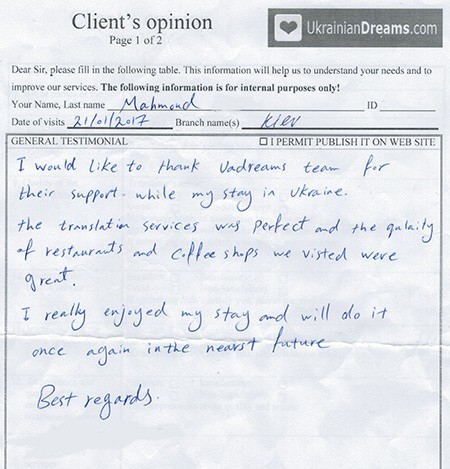 Client's opinion
Page 1 of 2
UkrainianDreams.com
Dear Sir, please fill in the following table. This information will help us to understand your needs and to
improve our services. The following information is for internal purposes only!
Your Name, Last name Mahmoud ID
Date of visits 21/01/2017 Branch name(s) Kiev
GENERAL TESTIMONIAL ☐ I PERMIT PUBLISH IT ON WEB SITE
I would like to thank Uadreams team for
their support. while my stay in Ukraine.
the translation services was perfect and the qulaity
of restaurants and coffee shops we visted were
great.
I really enjoyed my stay and will do it
once again in the nearst future
Best regards.